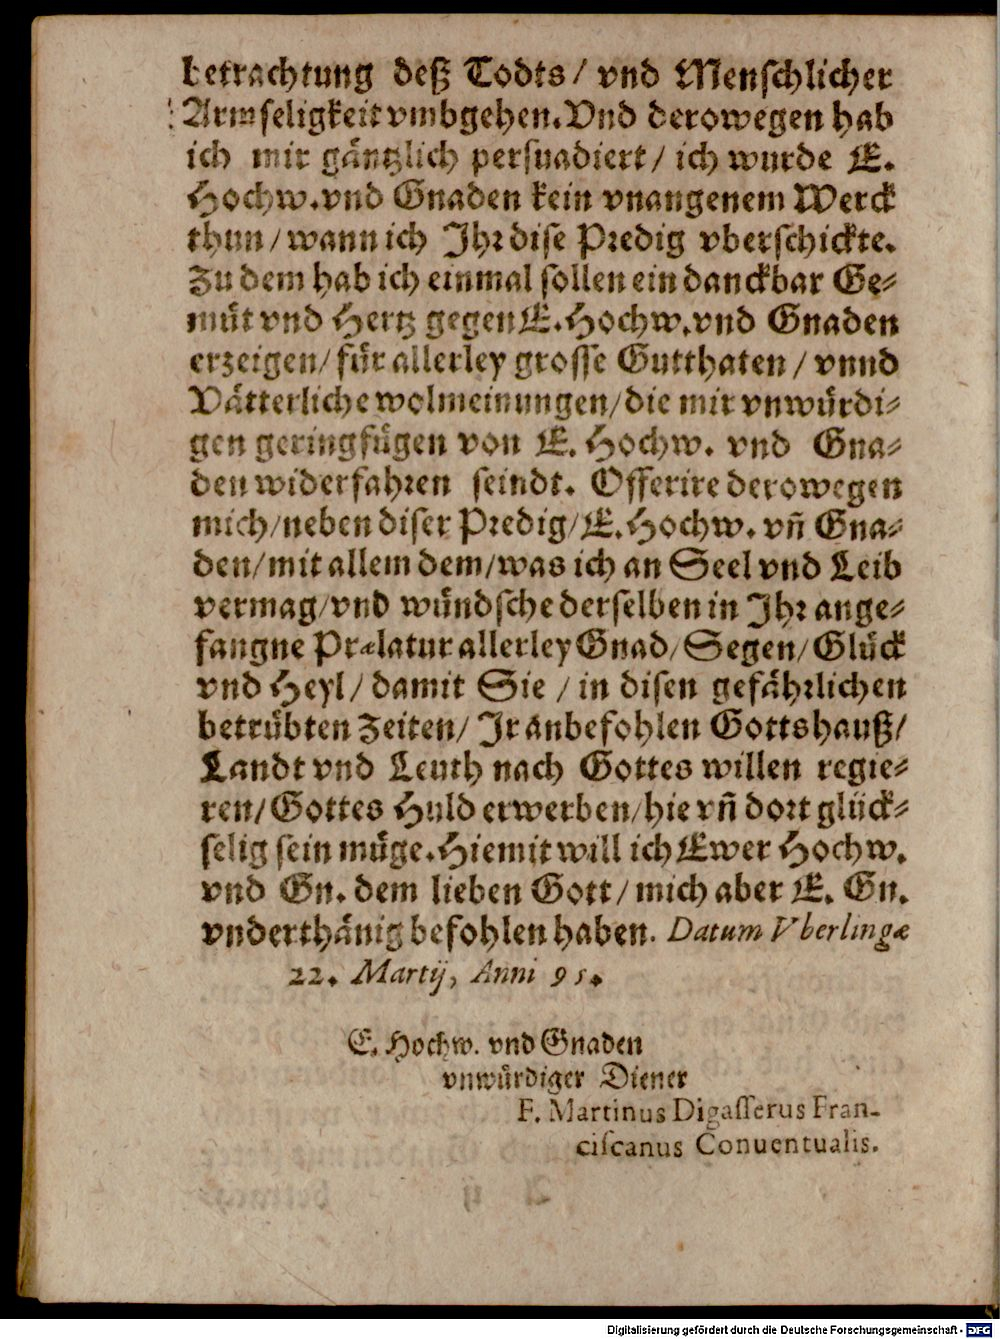 betrachtung deß Todts / vnd Menschlicher
Armseligkeit vmbgehen. Vnd derowegen hab
ich mir gäntzlich persuadiert / ich wurde E.
Hochw. vnd Gnaden kein vnangenem Werck
thun / wann ich Ihr dise Predig vberschickte.
Zu dem hab ich einmal sollen ein danckbar Ge-
müt vnd Hertz gegen E. Hochw. vnd Gnaden
erzeigen / für allerley grosse Gutthaten / vnnd
Vätterliche wolmeinungen / die mir vnwürdi-
gen geringfügen von E. Hochw. vnd Gna-
den widerfahren seindt. Offerire derowegen
mich / neben diser Predig / E. Hochw. vñ Gna-
den / mit allem dem / was ich an Seel vnd Leib
vermag / vnd wündsche derselben in Ihr ange-
fangne Prælatur allerley Gnad / Segen / Glück
vnd Heyl / damit Sie / in disen gefährlichen
betrübten Zeiten / Ir anbefohlen Gottshauß /
Landt vnd Leuth nach Gottes willen regie-
ren / Gottes Huld erwerben / hie vñ dort glück-
selig sein müge. Hiemit will ich Ewer Hochw.
vnd Gn. dem lieben Gott / mich aber E. Gn.
vnderthänig befohlen haben. Datum Vberlingæ
22. Martij, Anni 95.
E. Hochw. vnd Gnaden
vnwürdiger Diener
F. Martinus Digasserus Fran-
ciscanus Conuentualis.
Digitalisierung gefördert durch die Deutsche Forschungsgemeinschaft - DFG